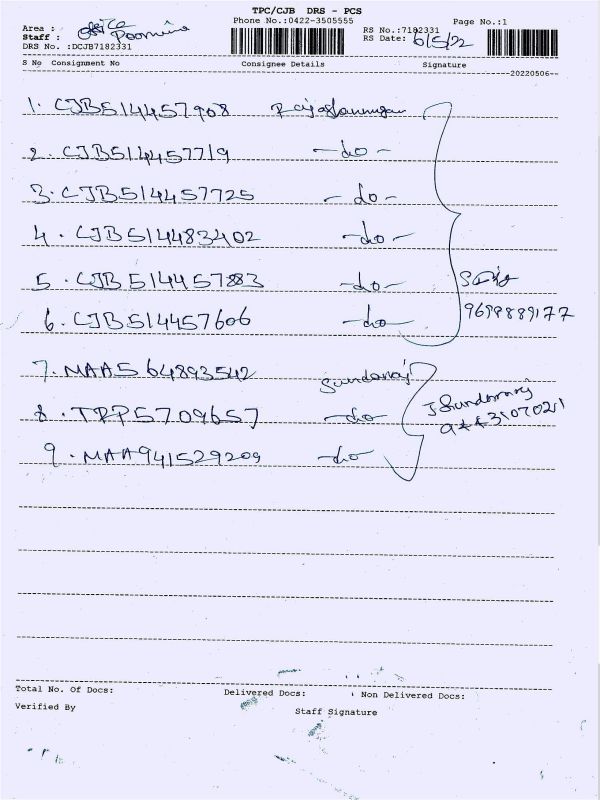 TPC/CJB DRS - PCS
Phone No.:0422-3505555
Page No.:1
Area : office
RS No.:7182331
Staff : Poornima
RS Date: 6/5/22
DRS No. :DCJB7182331
S No Consignment No Consignee Details Signature
20220506
1. CJB514457908
2. CJB514457719 -do-
3. CJB514457725 -do-
4. CJB514483402 -do-
5. CJB514457883 -do-
6. CJB514457606 -do-
9699889177
7. MAA564893542 Sundarraj
J Sundarraj
8. TRP5709657 -do-
9. MAA941529209 -do-
Total No. Of Docs: Delivered Docs: Non Delivered Docs:
Verified By Staff Signature